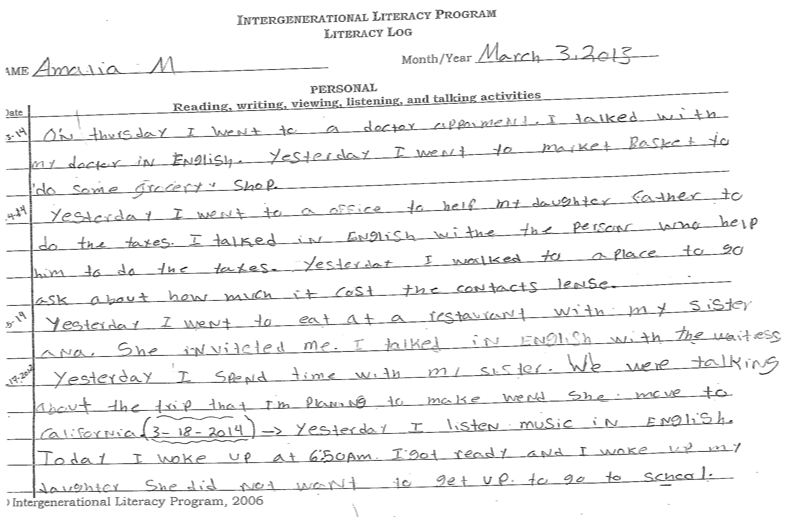 INTERGENERATIONAL LITERACY PROGRAM
LITERACY LOG
AME Amalia M
Month/Year March 3, 2013
PERSONAL
Date Reading, writing, viewing, listening, and talking activities
On thursday I went to a doctor appoiment. I talked with
my doctor in English. Yesterday I went to market Basket to
do some grocery shop.
Yesterday I went to a office to help my daughter father to
do the taxes. I talked in English withe the person who help
him to do the taxes. Yesterday I walked to a place to go
ask about how much it cost the contacts lense.
Yesterday I went to eat at a restaurant with my sister
ana. She inviteled me. I talked in English with the waitess
Yesterday I spend time with my sister. We were talking
about the trip that I'm planing to make wend she move to
California. (3-18-2014) → Yesterday I listen music in English.
Today I woke up at 6:50AM. I got ready and I woke up my
daughter She did not want to get up. to go to school.
Intergenerational Literacy Program, 2006